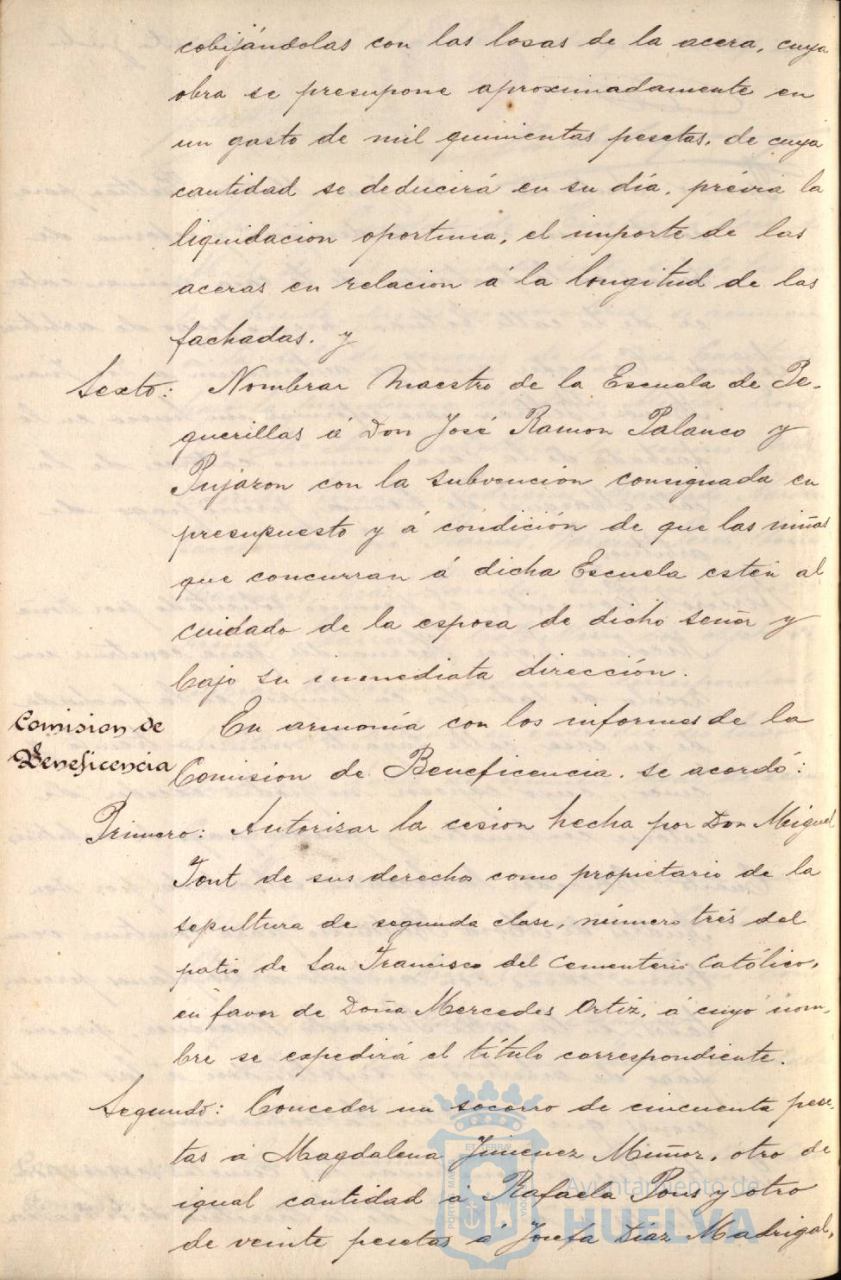 cobijándolas con las losas de la acera, cuya
obra se presupone aproximadamente en
un gasto de mil quinientas pesetas, de cuya
cantidad se deducirá en su día, prévia la
liquidacion oportuna, el importe de las
aceras en relacion á la longitud de las
fachadas. y
Sexto: Nombrar Maestro de la Escuela de Pe-
guerillas á Don José Ramon Palanco y
Pujaron con la subvención consignada en
presupuesto y á condición de que las niñas
que concurran á dicha Escuela estén al
cuidado de la esposa de dicho señor y
bajo su inmediata dirección.
Comision de
Beneficencia
En armonía con los informes de la
Comision de Beneficencia, se acordó:
Primero: Autorizar la cesion hecha por Don Miguel
Font de sus derechos como propietario de la
sepultura de segunda clase, número trés del
patio de San Francisco del Cementerio Católico,
en favor de Doña Mercedes Ortiz, á cuyo nom-
bre se expedirá el título correspondiente.
Segundo: Conceder un socorro de cincuenta pese-
tas á Magdalena Jimenez Muñoz, otro de
igual cantidad á Rafaela Pons y otro
de veinte pesetas á Josefa Diaz Madrigal,
Ayuntamiento de
HUELVA